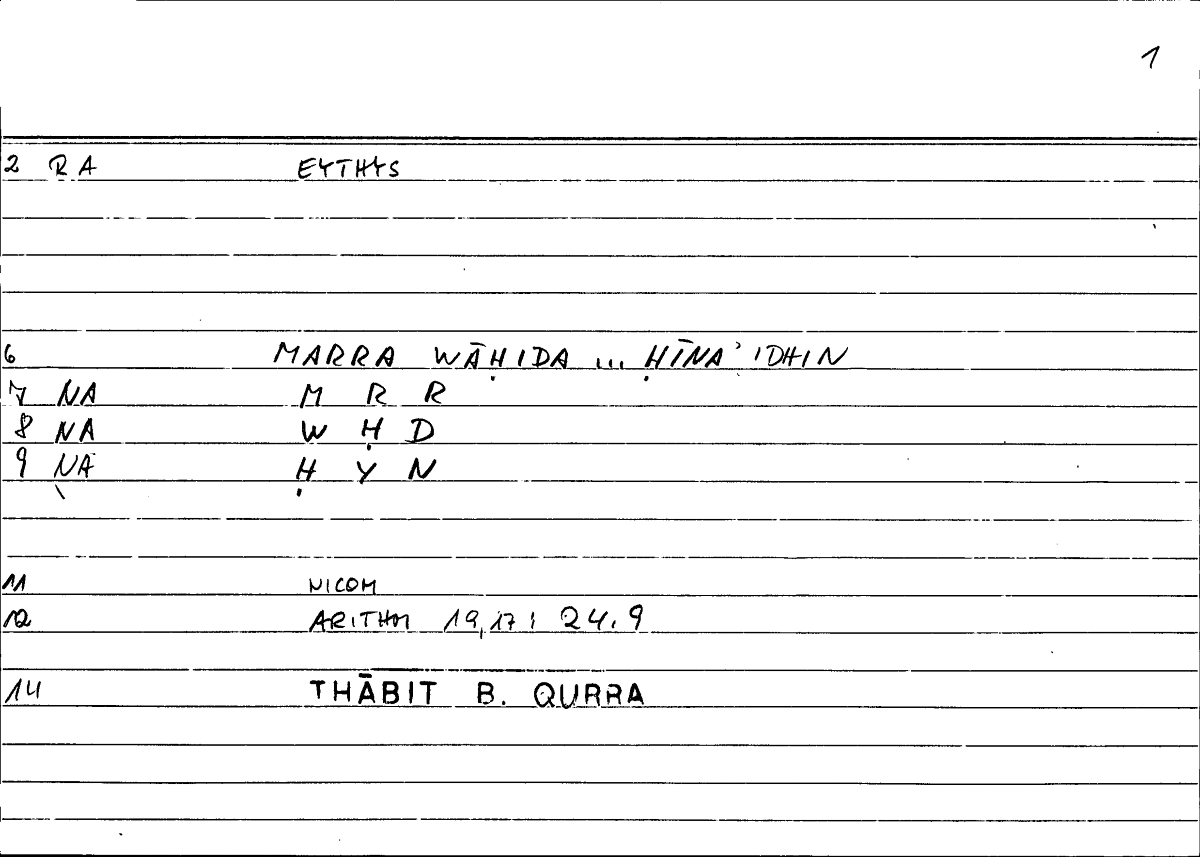 1
2 RA EYTHYS
6 MARRA WĀḤIDA ... ḤĪNA'IDHIN
7 NA M R R
8 NA W Ḥ D
9 NA Ḥ Y N
11 NICOM
12 ARITHM 19,17 : 24.9
14 THĀBIT B. QURRA